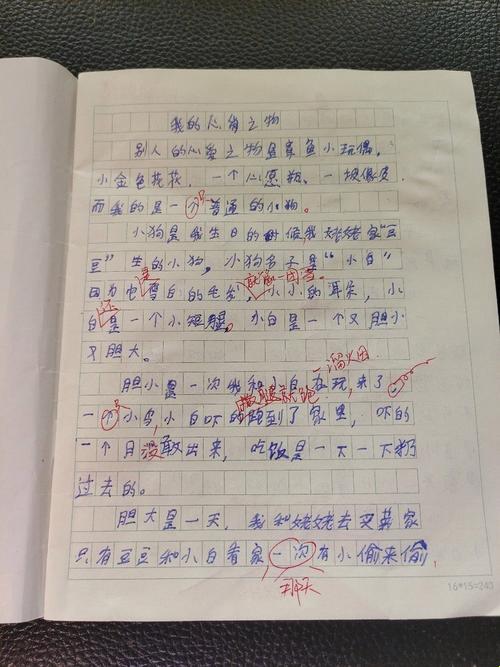 我的心爱之物
别人的心爱之物是章鱼小玩偶，
小金色花花，一个心愿瓶、一
而我的是一只普通的小狗。
小狗是我生日的时候我姥姥家“豆
豆”生的小狗，小狗名子是“小白”
是 就像一团雪
因为它雪白的毛发，小小的耳朵，小
还
白是一个小短腿。小白是一个又胆小
又胆大。
一溜火团
胆小是一次我和小白在玩，来了
只 撒腿就跑
一个小鸟，小白吓的跑到了家里，吓的
一个月没敢出来，吃饭是一下一下扔
过去的。
胆大是一天，我和姥姥去买菜家
只有豆豆和小白看家，一次有小偷来偷，
那天
16*15=240